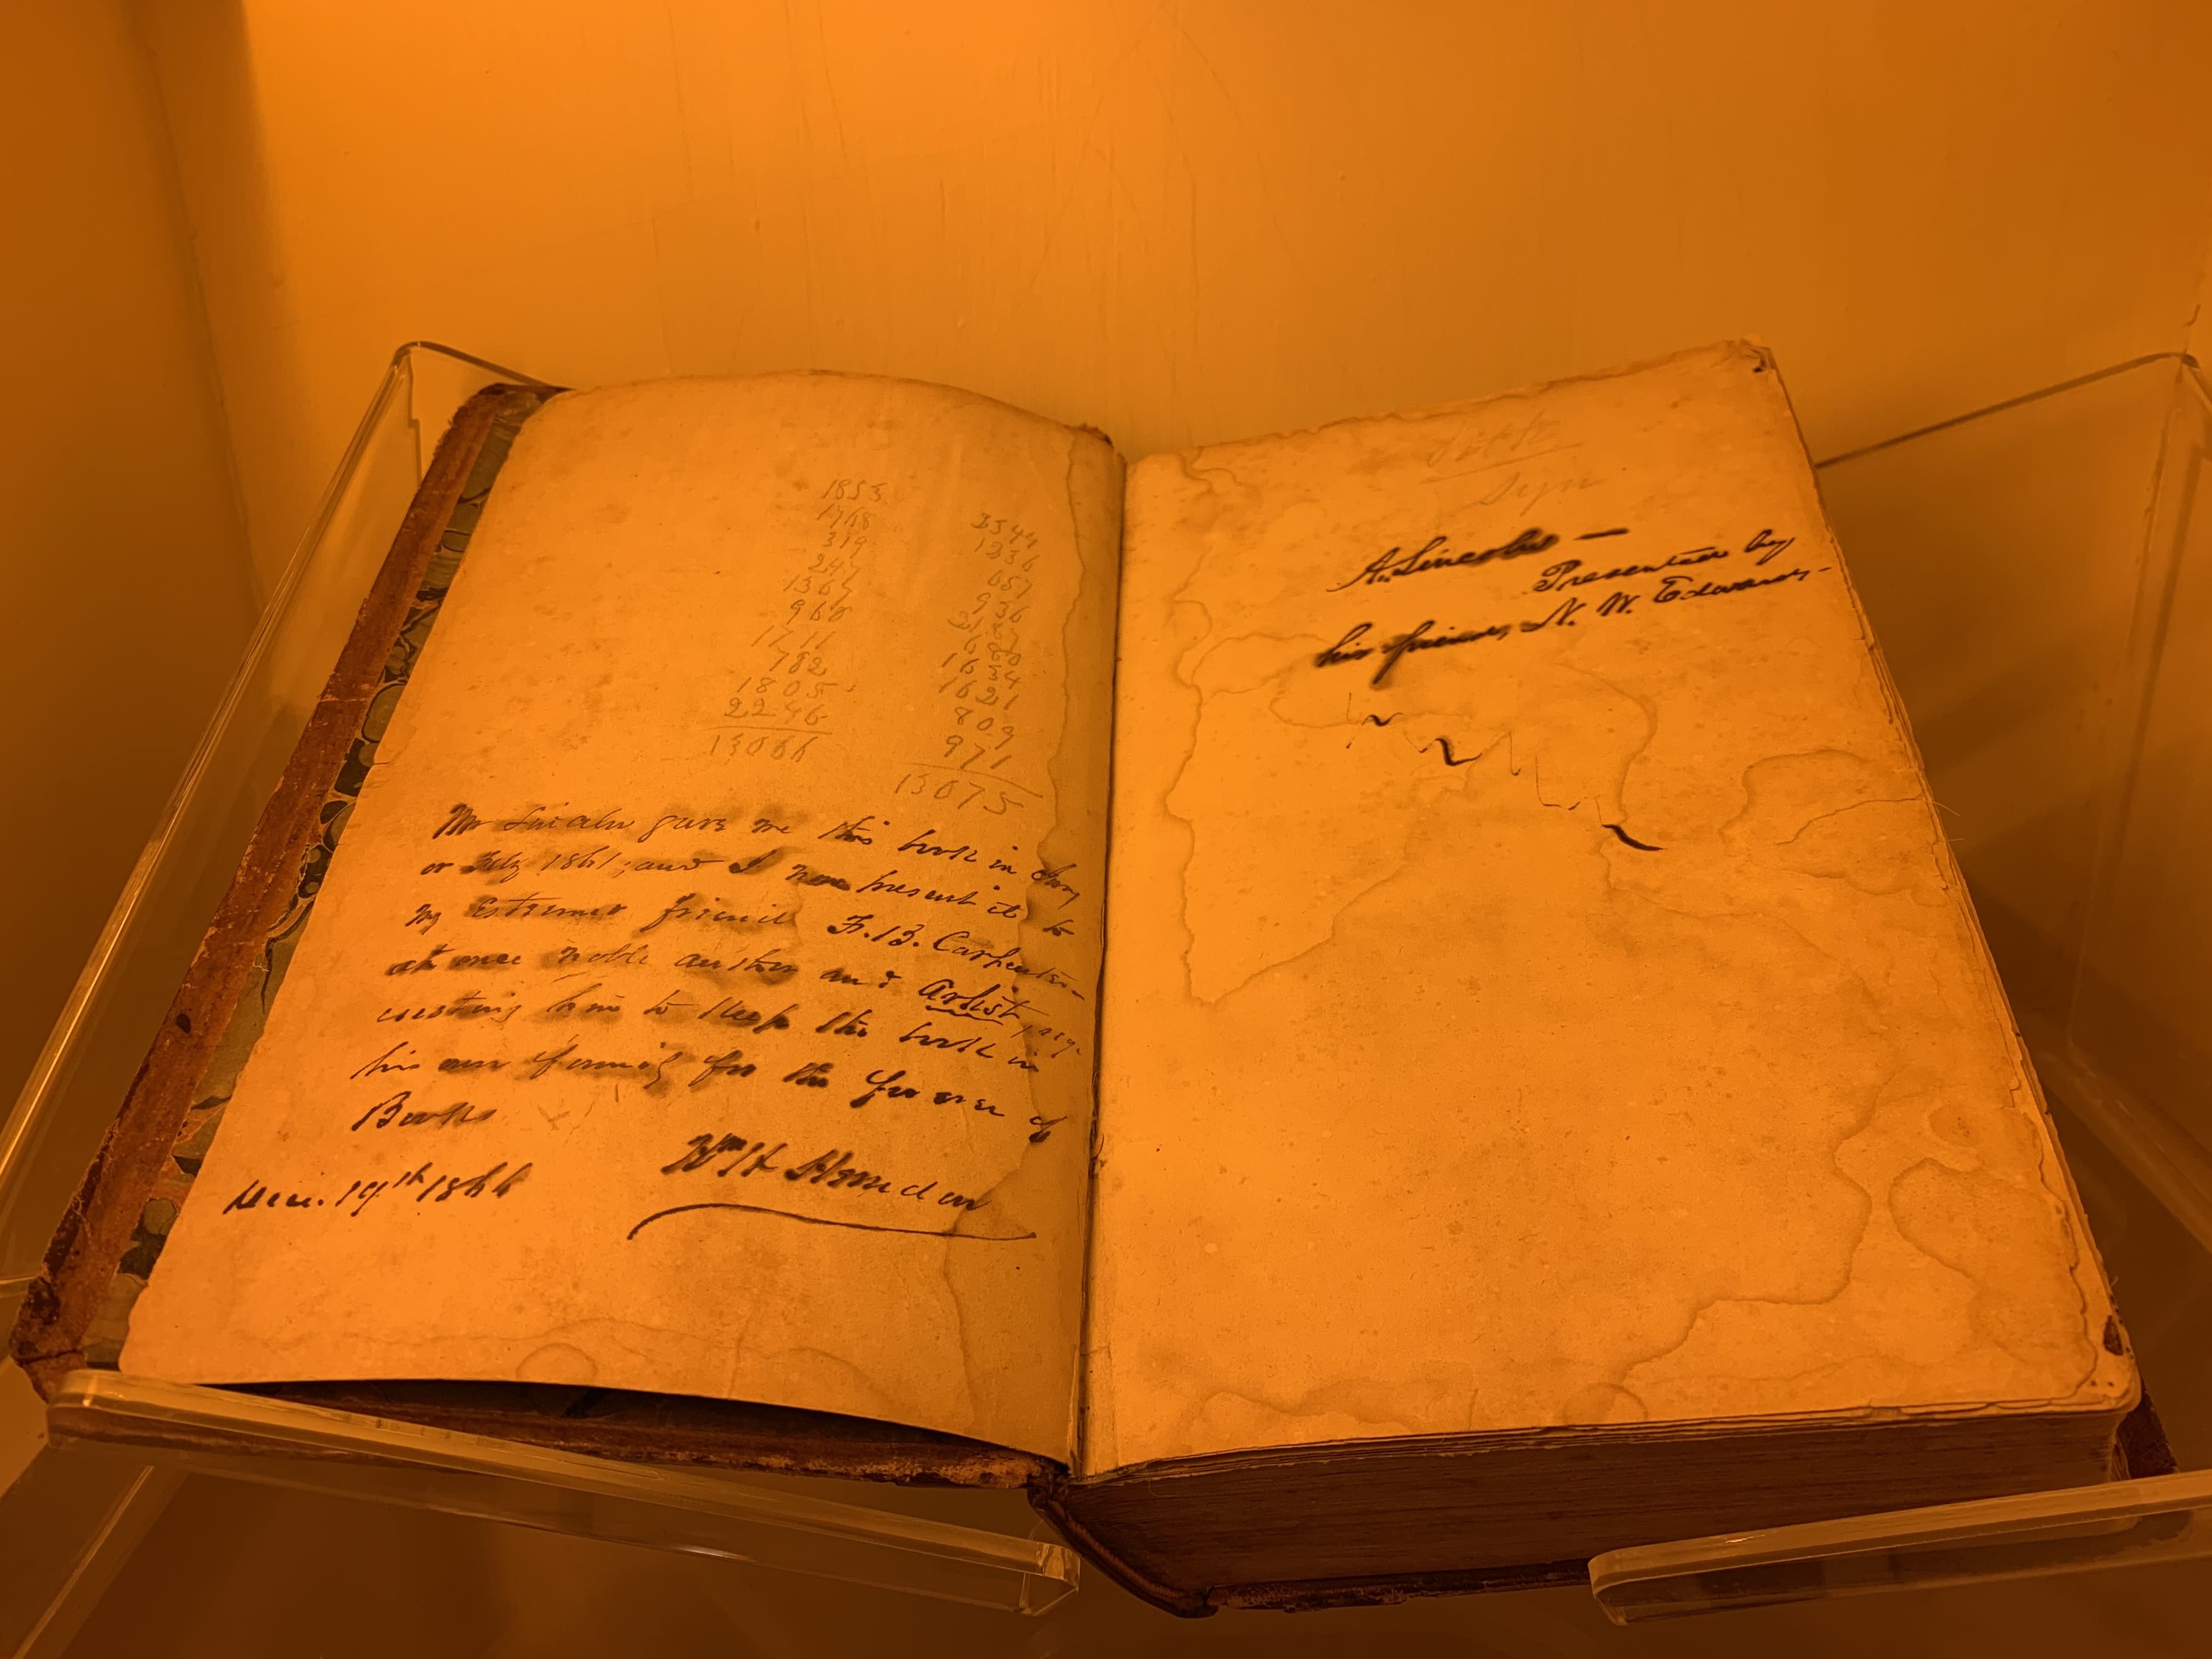 1853
1768
319
247
1367
968
1711
782
1805
2246
13066
1236
657
936
1621
809
971
13075
Mr Lincoln gave me this book in Jany
or Feby 1861; and I now present it to
my Esteemed friend F. B. Carpenter -
at once noble author and Artist, req-
uesting him to Keep this book in
his own family for the forever of
Books
Wm H Herndon
Dec. 19th 1866
A. Lincoln —
Presented by
his friend, N. W. Edwards -